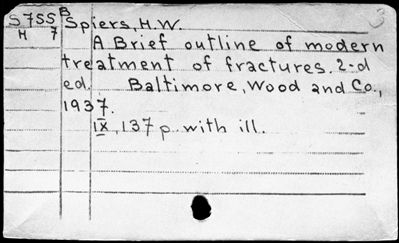 S755 B Spiers, H.W.
H 7
A Brief outline of modern
treatment of fractures. 2-d
ed. Baltimore, Wood and Co.,
1937.
IX, 137 p. with ill.